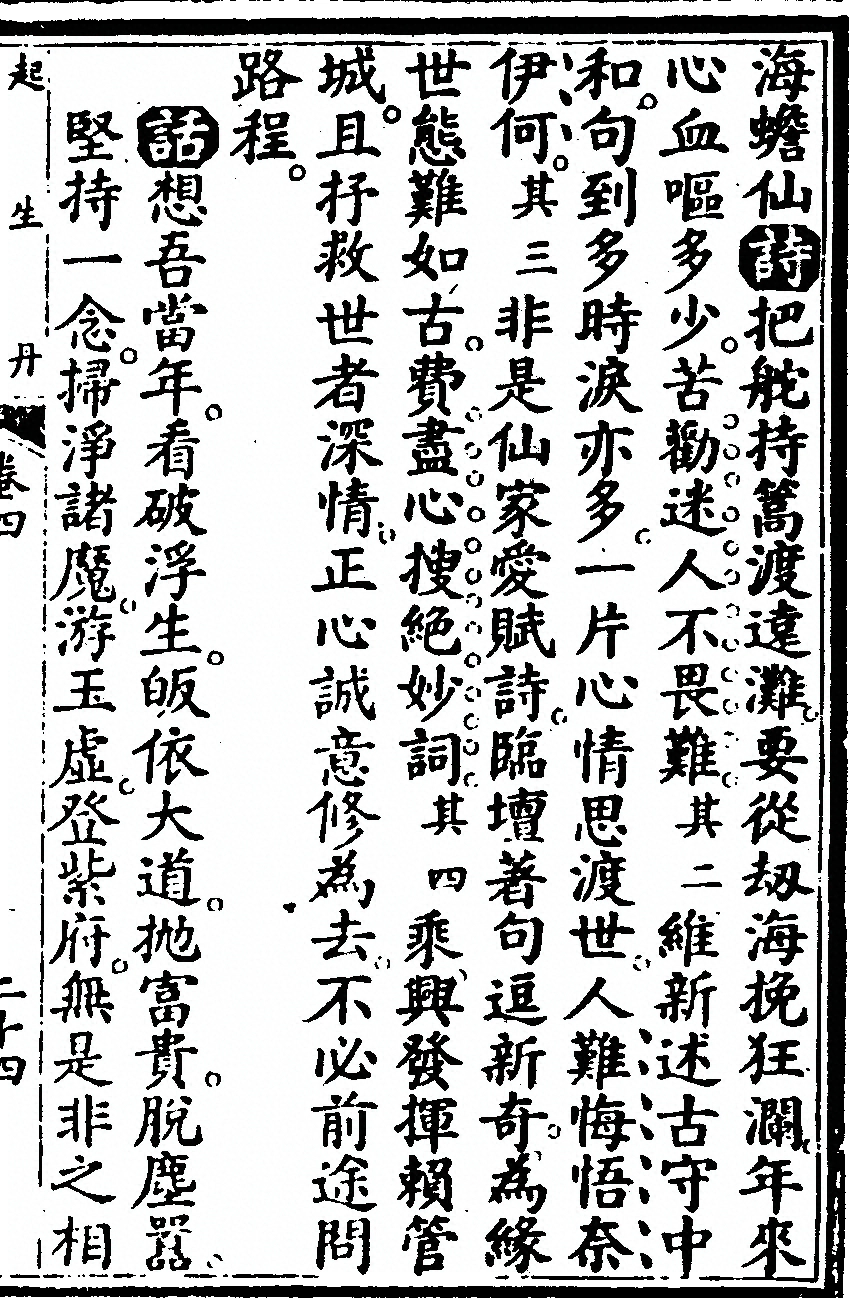 海蟾仙詩把舵持篙渡遠灘。要從刼海挽狂瀾。年來
心血嘔多少。苦勸迷人不畏難。其二維新述古守中
和。句到多時淚亦多。一片心情思渡世。人難悔悟奈
伊何。其三非是仙家愛賦詩。臨壇著句逗新奇。為緣
世態難如古。費盡心搜絕妙詞。其四乘興發揮賴管
城。且抒救世者深情。正心誠意修為去。不必前途問
路程。
話想吾當年。看破浮生。皈依大道。拋富貴。脫塵囂。
堅持一念。掃淨諸魔。游玉虛。登紫府。無是非之相
起生丹 卷四 二十四